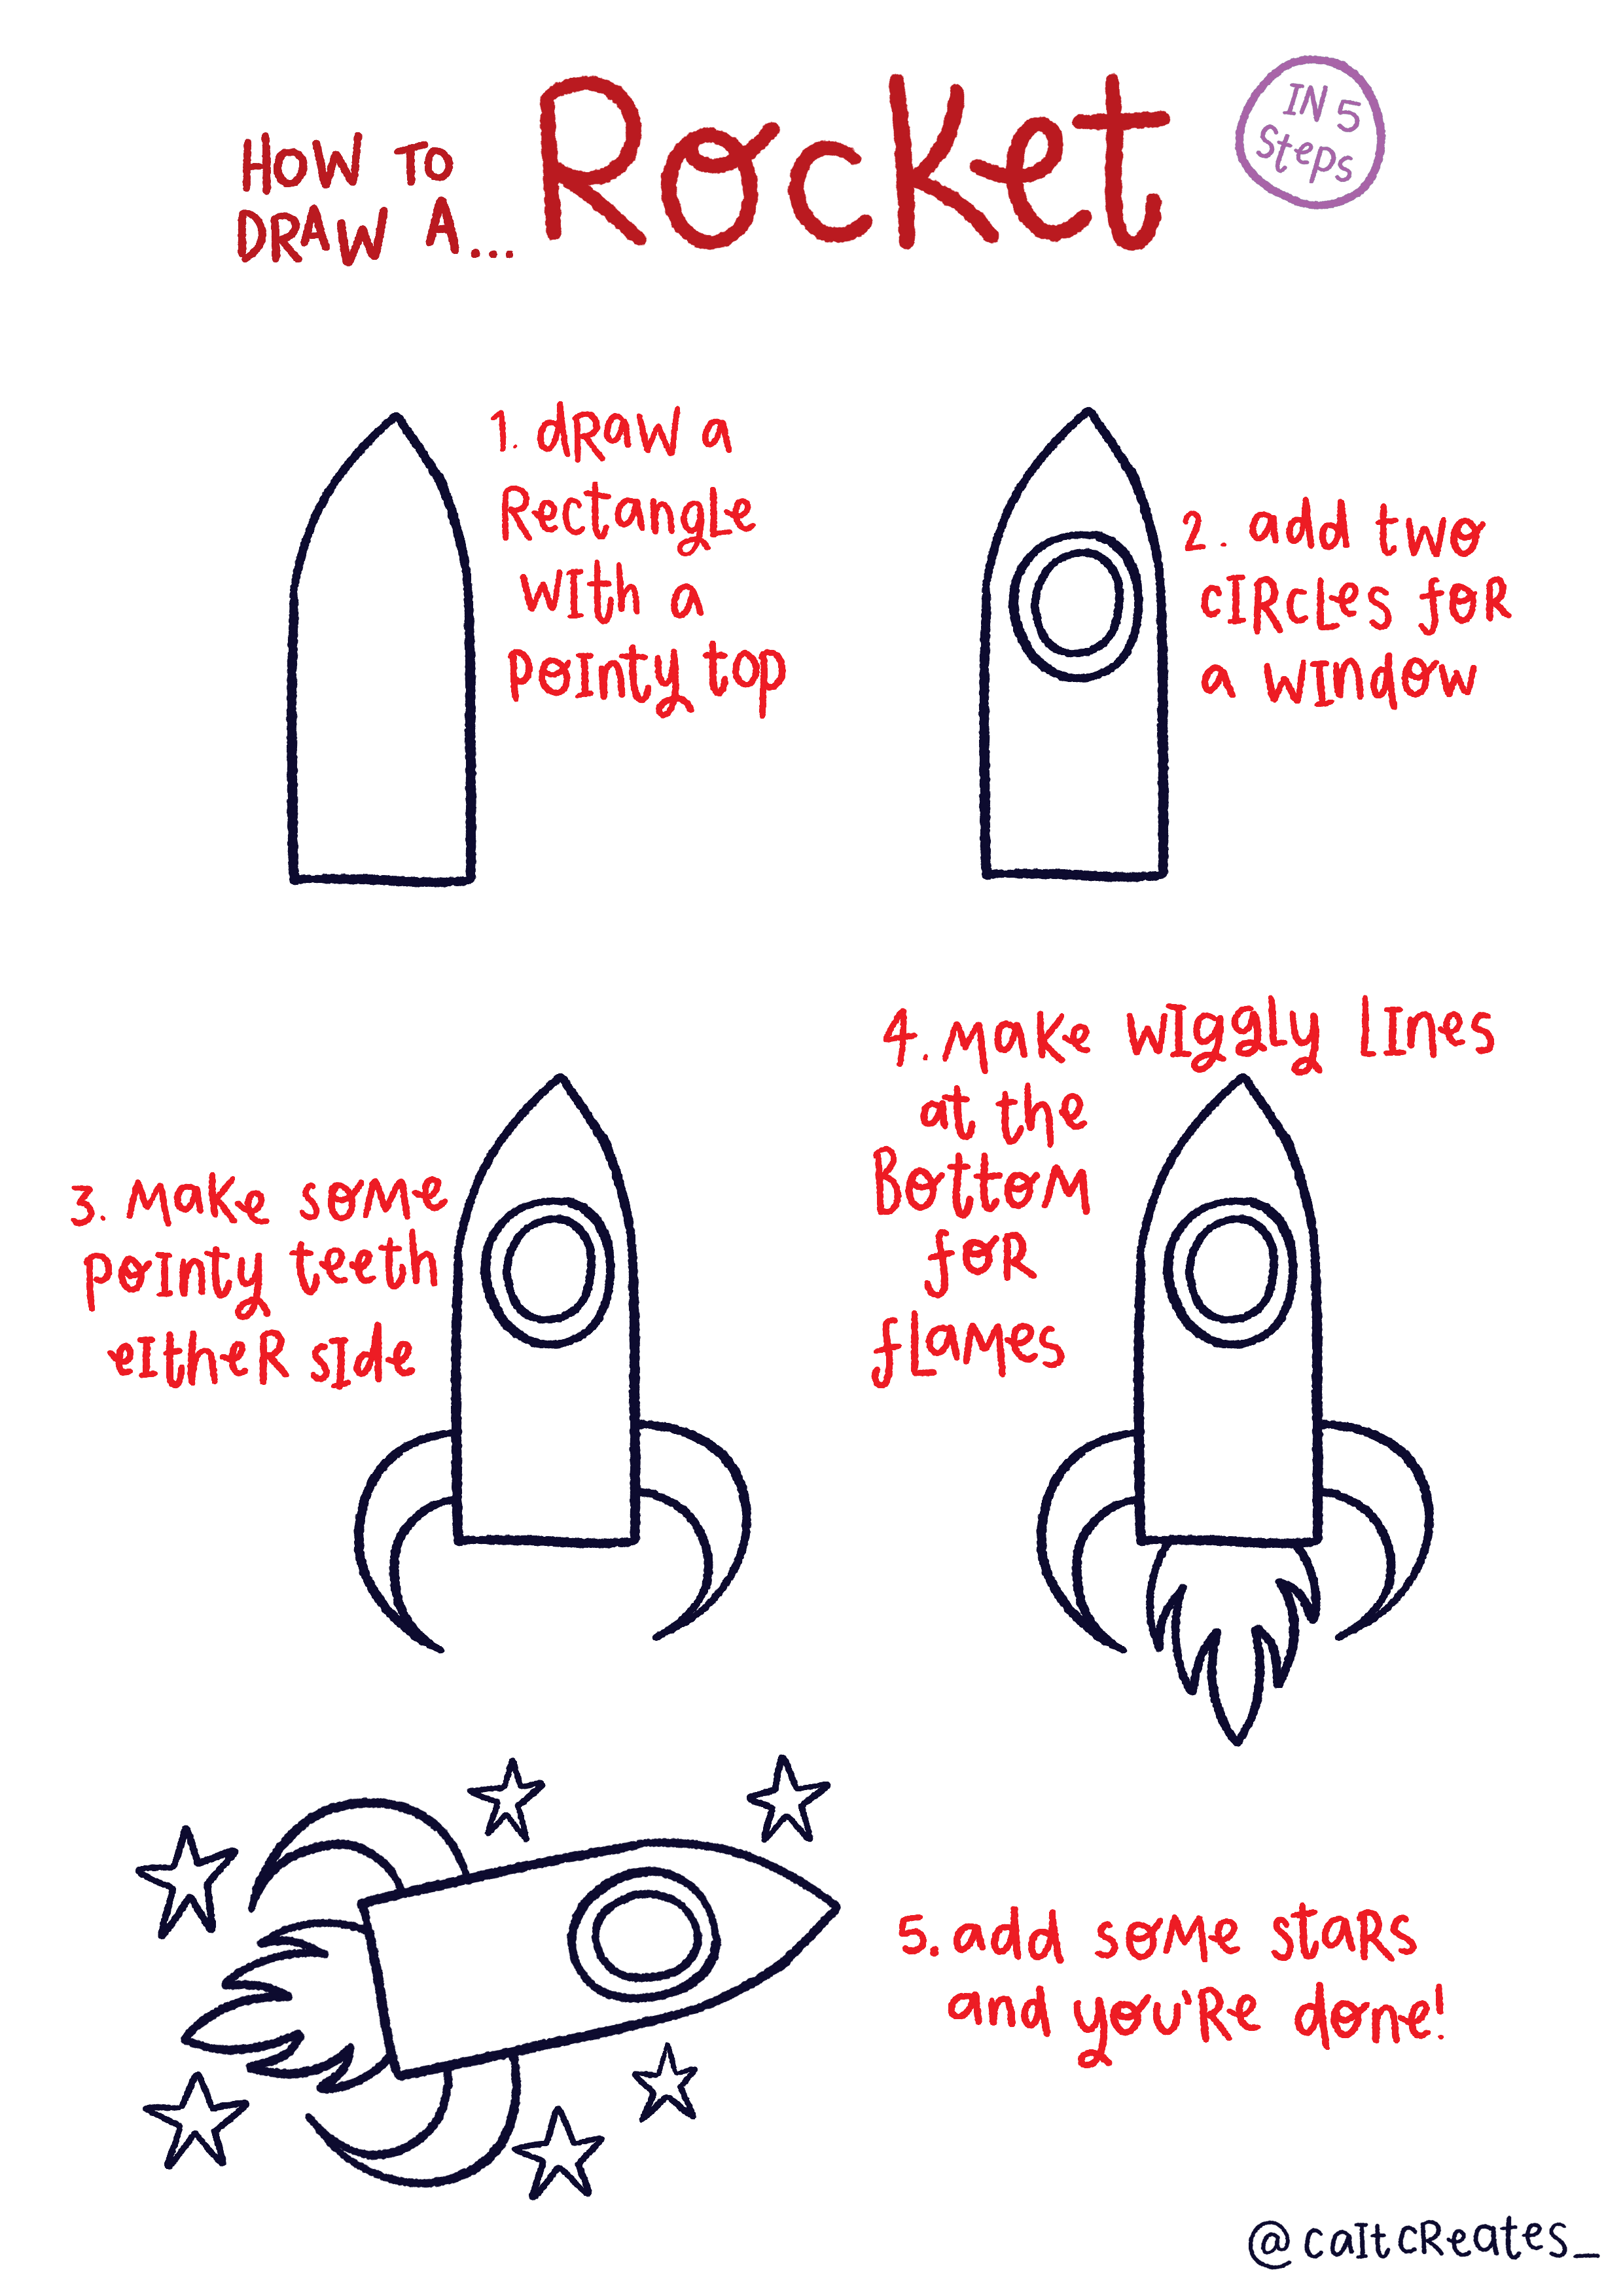 HOW TO
DRAW A...
Rocket
IN 5
Steps
1. draw a
Rectangle
with a
pointy top
2. add two
circles for
a window
3. Make some
pointy teeth
either side
4. Make wiggly lines
at the
Bottom
for
flames
5. add some stars
and you're done!
@caitcreates_